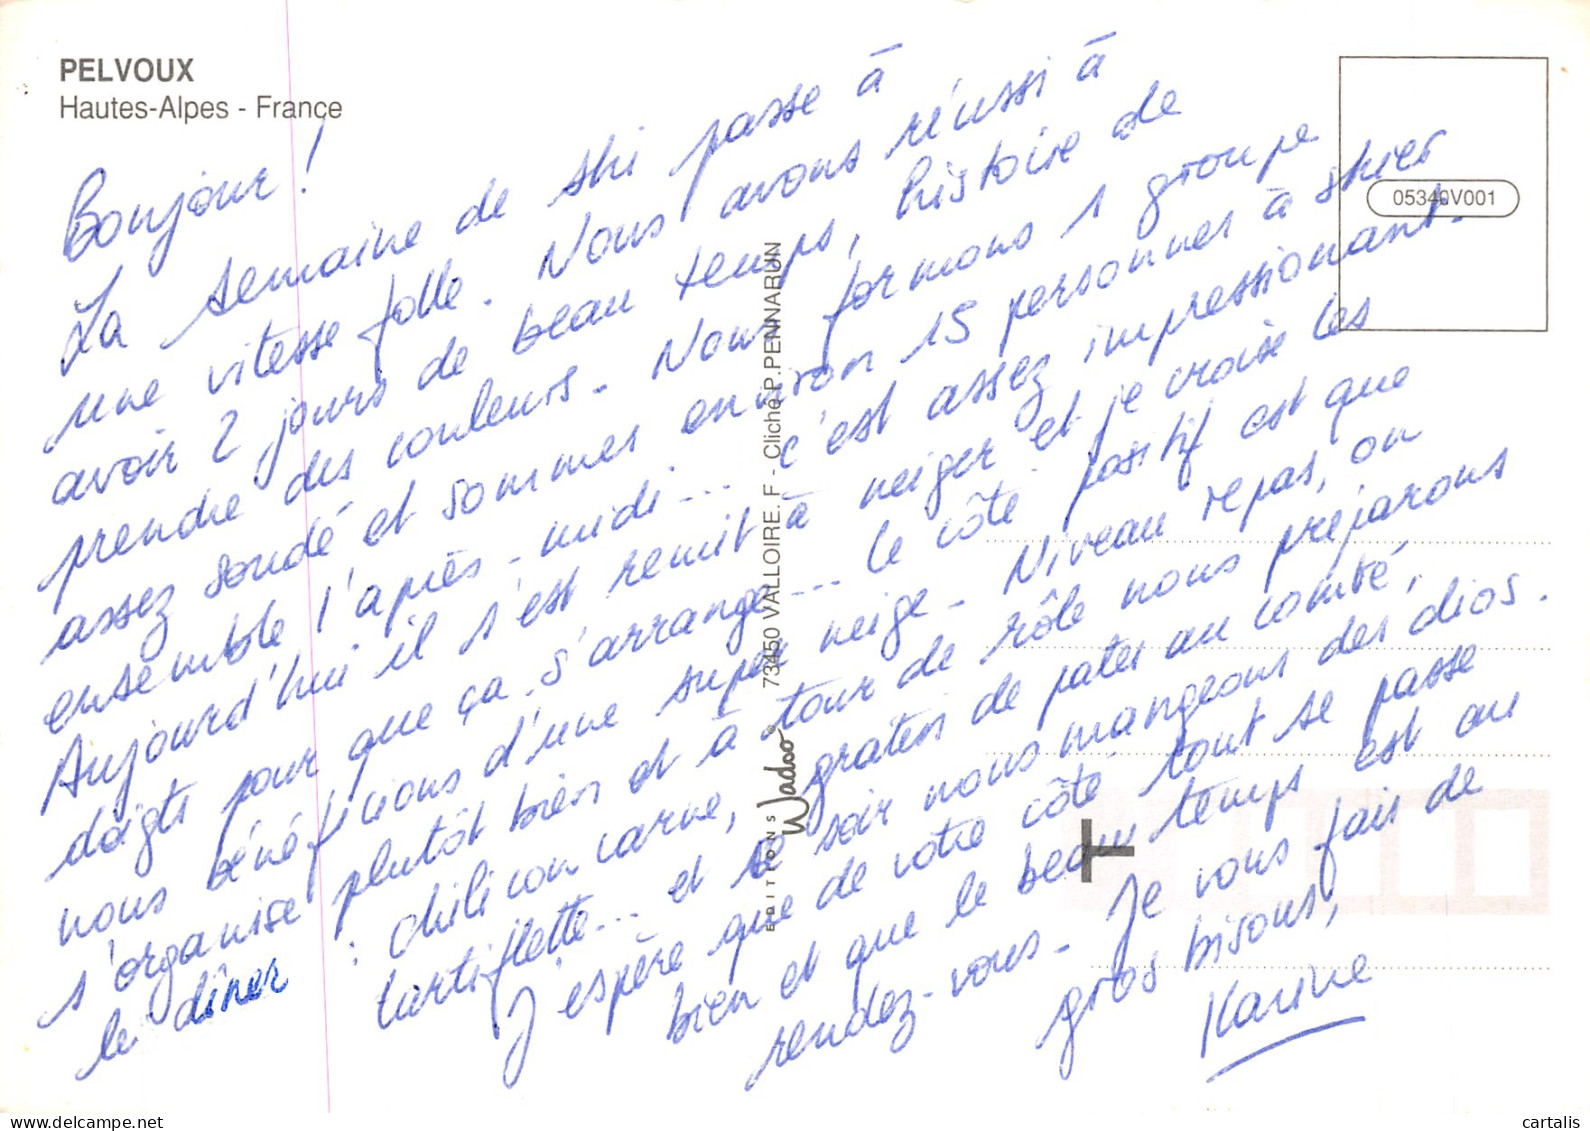 PELVOUX
Hautes-Alpes - France
05340V001
Bonjour !
La semaine de ski passe à
une vitesse folle. Nous avons réussi à
avoir 2 jours de beau temps, histoire de
prendre des couleurs. Nous formons 1 groupe
assez soudé et sommes environ 15 personnes à skier
ensemble l'après-midi... c'est assez impressionant.
Aujourd'hui il s'est remit à neiger et je croise les
doigts pour que ça s'arrange... le côté positif est que
nous bénéficions d'une super neige. Niveau repas, on
s'organise plutôt bien et à tour de rôle nous préparons
le dîner : chili con carne, gratin de pates au comté,
tartiflette... et le soir nous mangeons des dios.
J'espère que de votre côté tout se passe
bien et que le beau temps est au
rendez-vous. Je vous fais de
gros bisous,
Karine
EDITIONS Wadoo 73450 VALLOIRE. F - Cliché P. PENNARUN
delcampe.net
cartalis